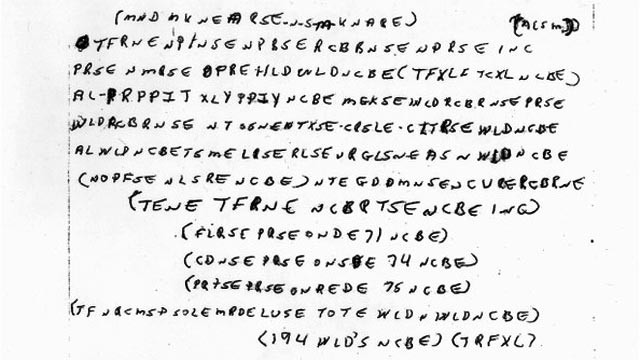 (MND MKNEARSE-N-S-M-KNARE) (ACSM)
TFRNENPINSENPBSERCBBNSENPRSEINC
PRSENMRSEOPREHLDWLDNCBE(TFXLFTCXLNCBE)
AL-PRPPITXLYPPIYNCBEMGKSEWLDRCBRNSEPRSE
WLDRCBRNSENTSGNENTXSE-CRSLE-CITRSEWLDNCBE
ALWLDNCBETSMELRSERLSEURGLSNEASNWLDNCBE
(NOPFSENLSRENCBE)NTEGDDMNSENCURERCBRNE
(TENETFRNENCBRTSENCBEING)
(FLRSEPRSEONDE71NCBE)
(CDNSEPRSEONSDE74NCBE)
(PRTSEPRSEONREDE75NCBE)
(TFNQCMSPSOLEMRDELUSETOTEWLDNWLDNCBE)
(194WLD'SNCBE)(TRFXL)